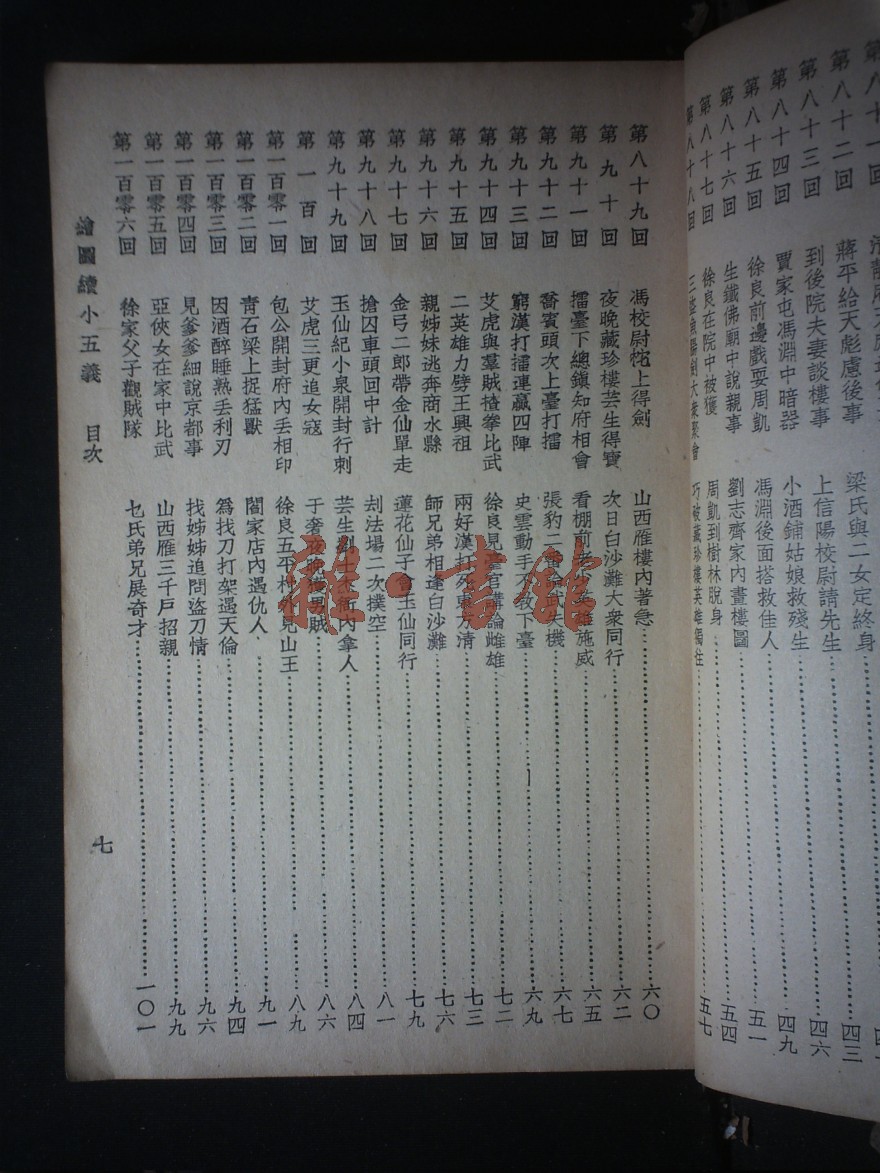 第八十一回
第八十二回 蔣平給天彪慮後事 梁氏與二女定終身 四三
第八十三回 到後院夫妻談樓事 上信陽校尉請先生 四六
第八十四回 賈家屯馮淵中暗器 小酒鋪姑娘救殘生 四九
第八十五回 徐良前邊戲耍周凱 馮淵後面搭救佳人 五一
第八十六回 生鐵佛廟中說親事 劉志齊家內畫樓圖 五四
第八十七回 徐良在院中被獲 周凱到樹林脫身 五七
第八十八回 三盜魚腸劍大衆聚會 巧破藏珍樓英雄
第八十九回 馮校尉上得劍 山西雁樓內著急 六〇
第九十回 夜晚藏珍樓芸生得寶 次日白沙灘大衆同行 六二
第九十一回 擂臺下總鎮知府相會 看棚前老少英雄施威 六五
第九十二回 喬賓頭次上臺打擂 張豹二番論武失機 六七
第九十三回 窮漢打擂連贏四陣 史雲動手不教下臺 六九
第九十四回 艾虎與羣賊揸拳比武 徐良見臺官講論雌雄 七二
第九十五回 二英雄力劈王興祖 兩好漢打死東方清 七三
第九十六回 親姊妹逃奔商水縣 師兄弟相逢白沙灘 七六
第九十七回 金弓二郎帶金仙單走 蓮花仙子會玉仙同行 七九
第九十八回 搶囚車頭回中計 刦法場二次撲空 八一
第九十九回 玉仙紀小泉開封行刺 芸生劉士杰衙內拿人 八四
第一百回 艾虎三更追女寇 于奢夜晚獲男賊 八六
第一百零一回 包公開封府內丟相印 徐良五平村外見山王 八九
第一百零二回 靑石梁上捉猛獸 閻家店內遇仇人 九一
第一百零三回 因酒醉睡熟丟利刃 爲找刀打架遇天倫 九四
第一百零四回 見爹爹細說京都事 找姊姊追問盜刀情 九六
第一百零五回 亞俠女在家中比武 山西雁三千戶招親 九九
第一百零六回 徐家父子觀賊隊 乜氏弟兄展奇才 一〇一
繪圖續小五義 目次 七
雜書館